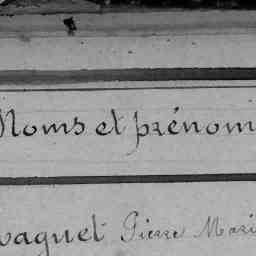 Noms et prénom
vaquet Pierre Mari